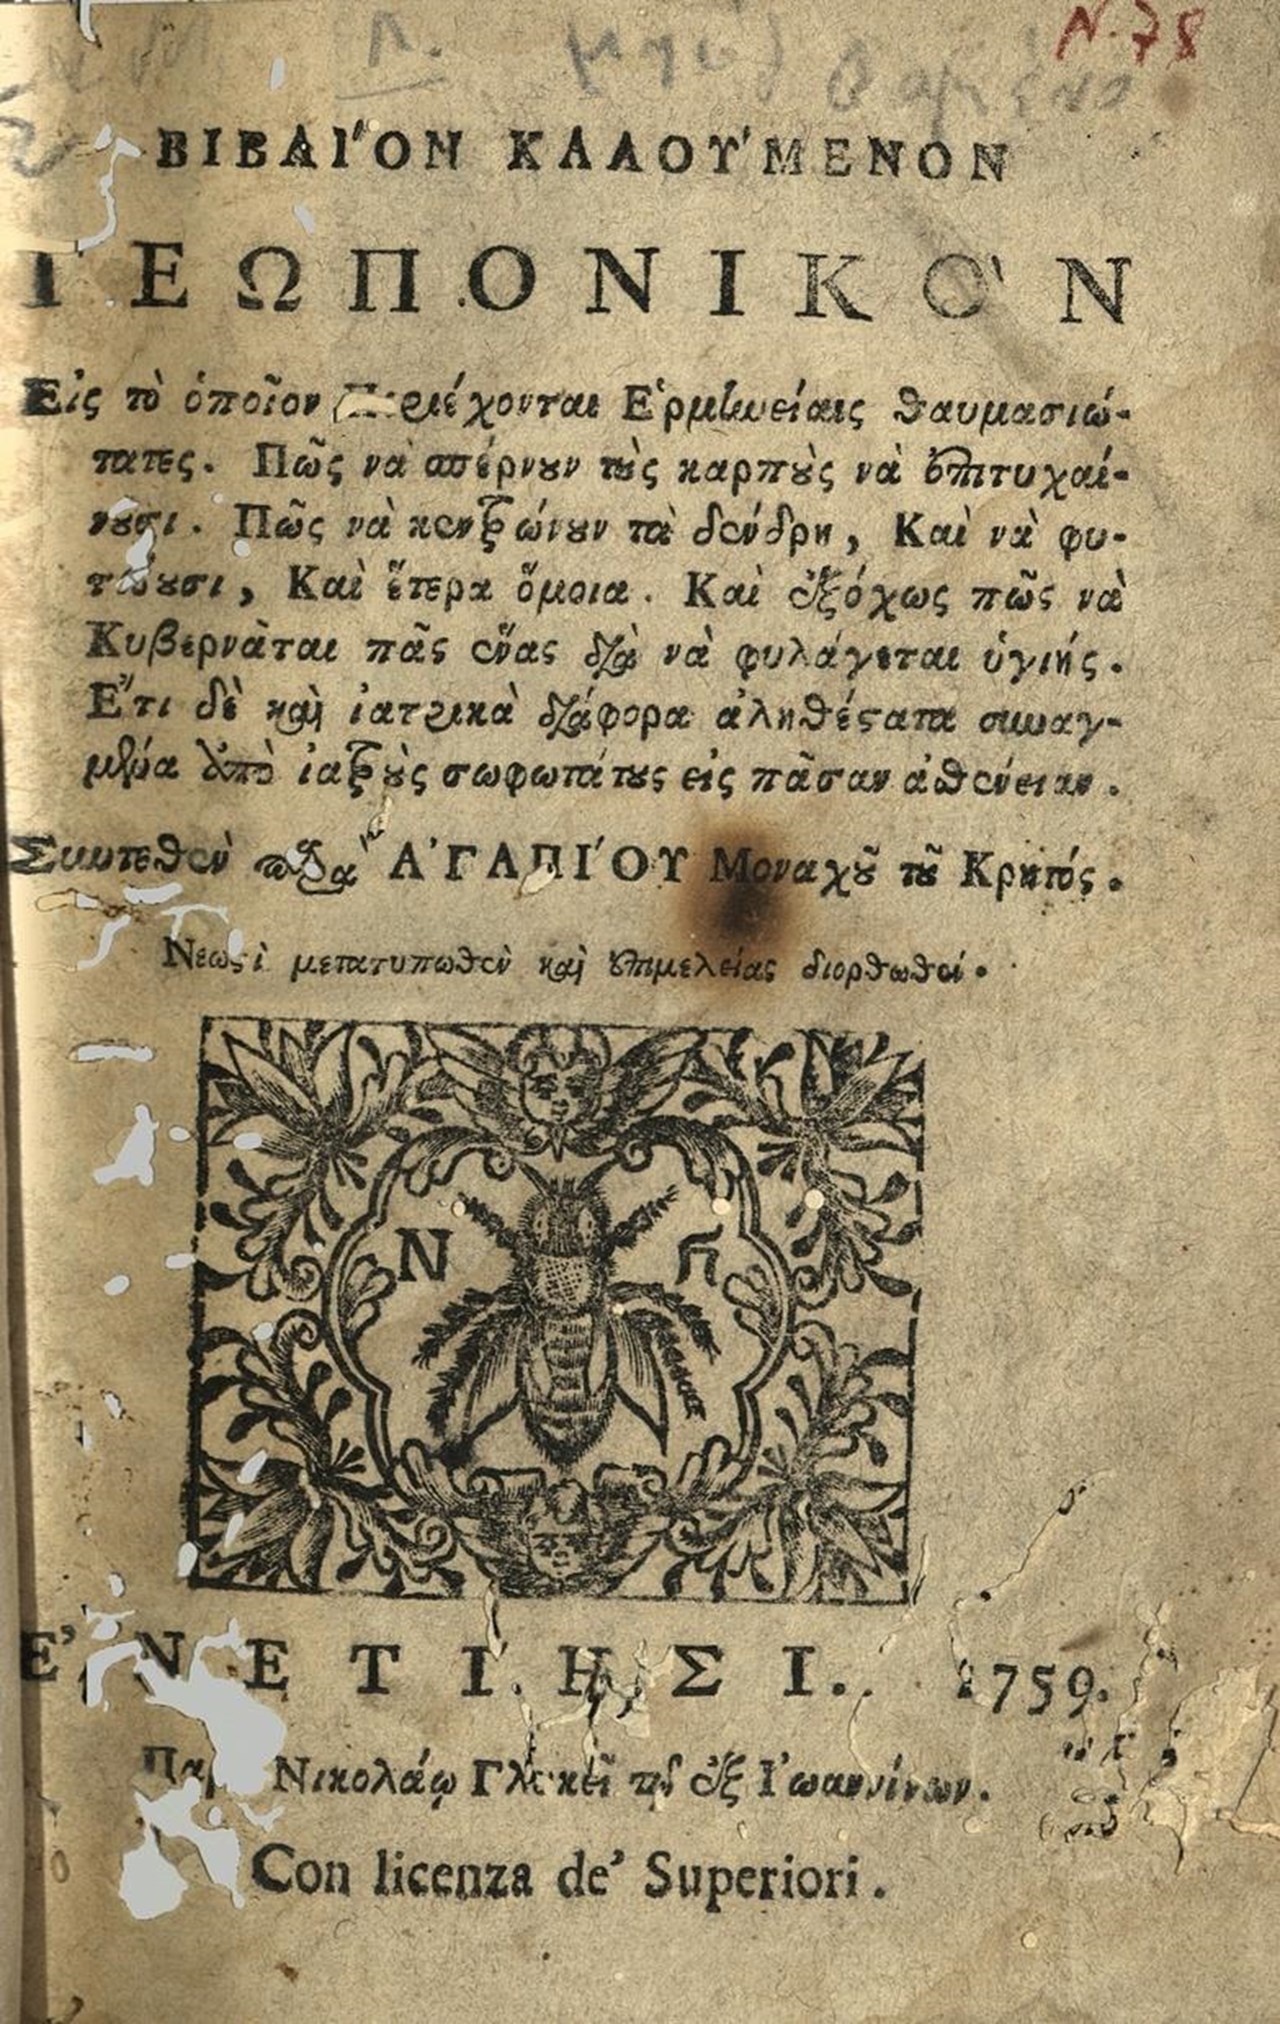 Ν. 78
ΒΙΒΛΙ´ΟΝ ΚΑΛΟΥ´ΜΕΝΟΝ
ΓΕΩΠΟΝΙΚΟ`Ν
Εἰς τὸ ὁποῖον Περιέχονται Ἑρμηνείαις θαυμασιώ-
τατες. Πῶς νὰ σπέρνουν τοὺς καρποὺς νὰ ἐπιτυχαί-
νουσι. Πῶς νὰ κεντρώνουν τὰ δένδρη, Καὶ νὰ φυ-
τεύουσι, Καὶ ἕτερα ὅμοια. Καὶ ἐξόχως πῶς νὰ
Κυβερνᾶται πᾶς ἕνας διὰ νὰ φυλάγεται ὑγιής.
Ἔτι δὲ καὶ ἰατρικὰ διάφορα ἀληθέστατα συναγ-
μένα ἀπὸ ἰατροὺς σωφωτάτους εἰς πᾶσαν ἀσθένειαν.
Συντεθὲν παρὰ Ἀ´ΓΑΠΙ´ΟΥ Μοναχοῦ τοῦ Κρητός.
Νεωστὶ μετατυπωθὲν καὶ ἐπιμελείας διορθωθέν.
Ν Γ
Ἐ´ΝΕΤΙ´ΗΣΙ. 1759.
Παρὰ Νικολάῳ Γλυκεῖ τῷ ἐξ Ἰωαννίνων.
Con licenza de' Superiori.